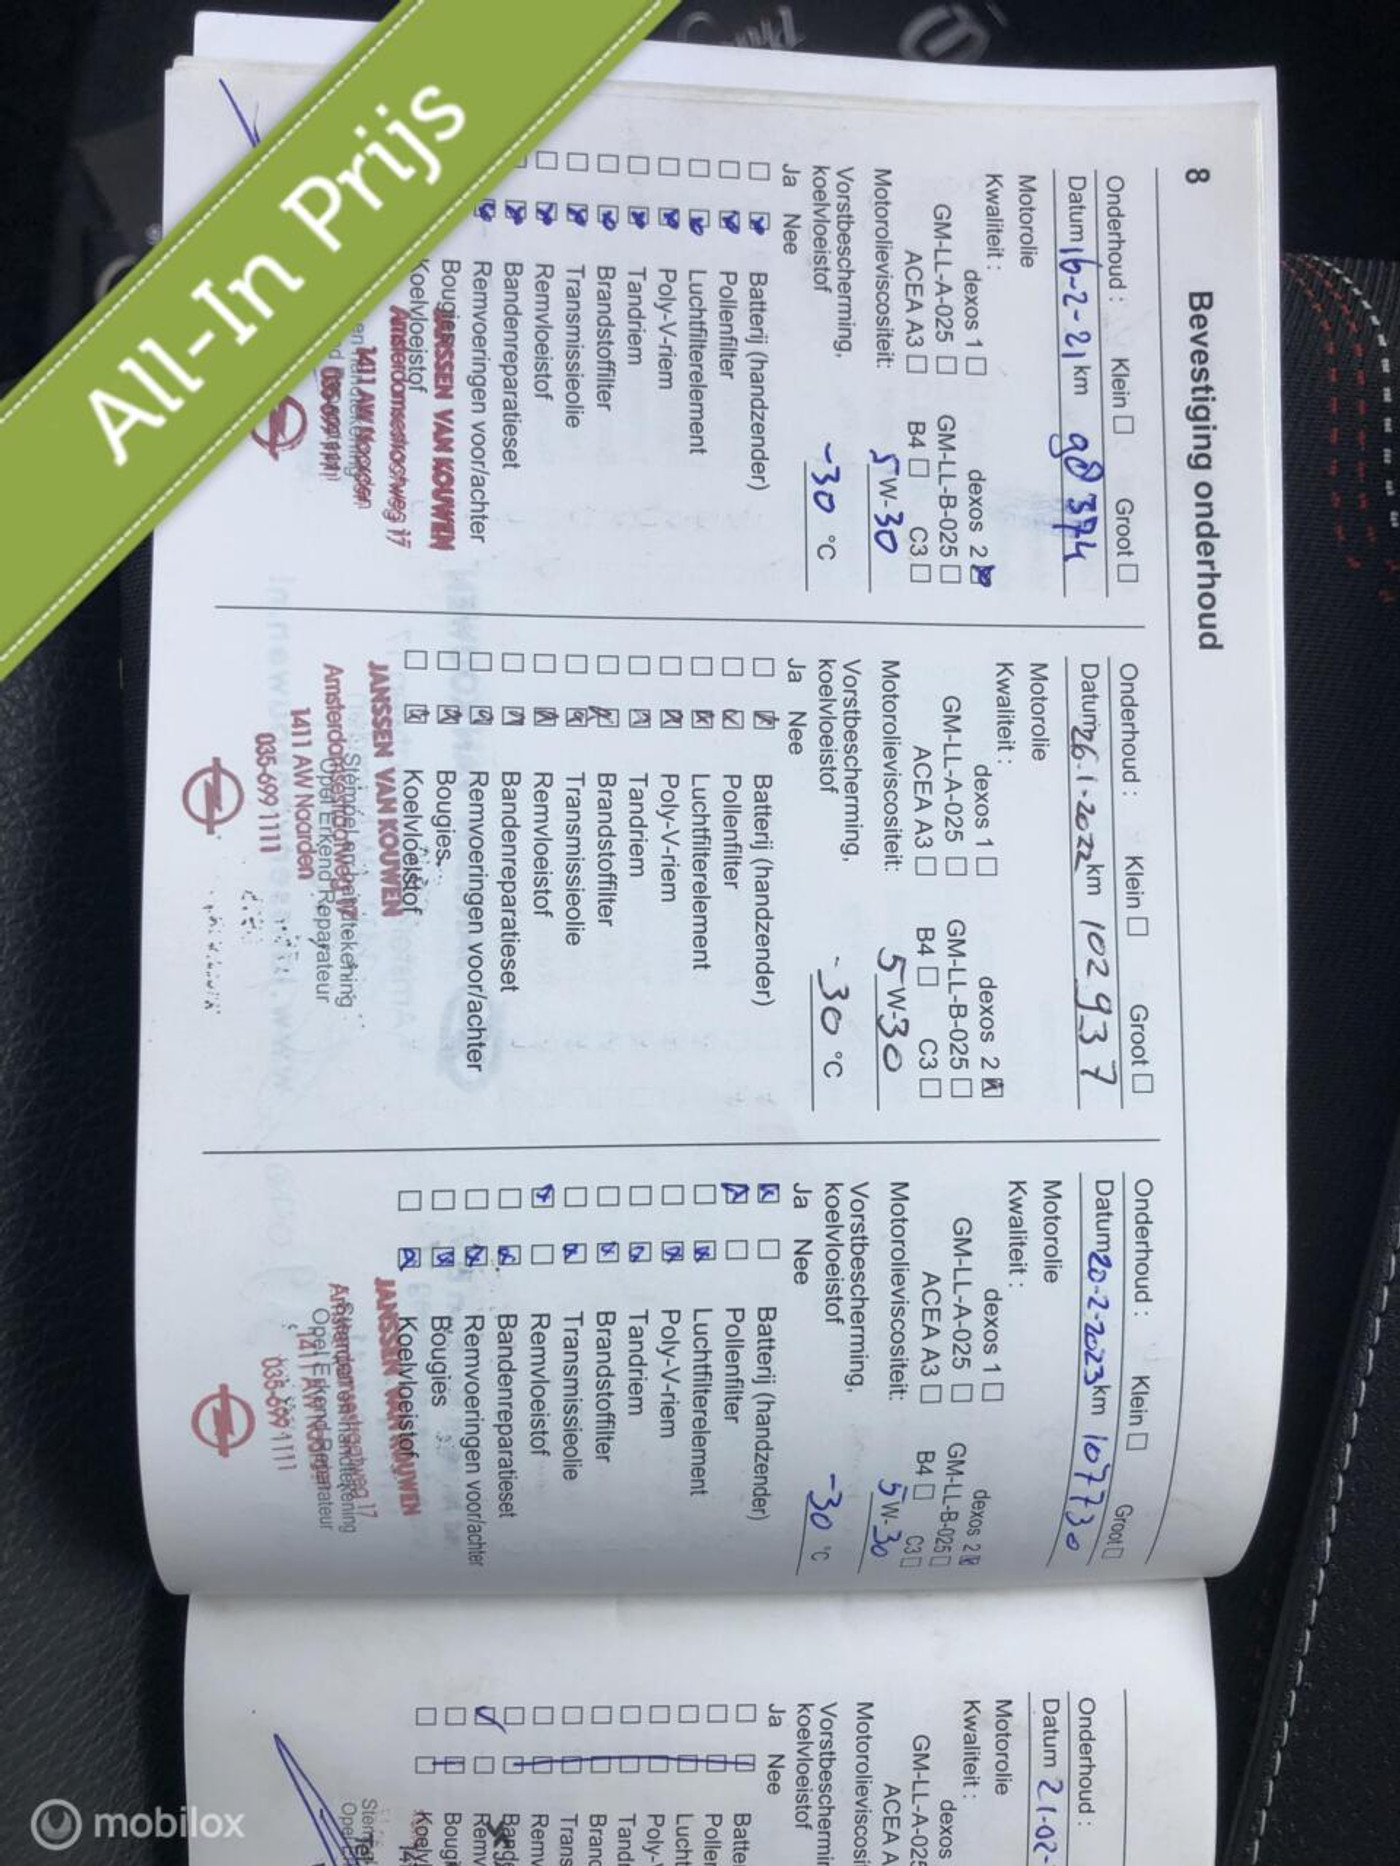 All-In Prijs
8 Bevestiging onderhoud
Onderhoud : Klein Groot
Datum 16-2-21 km 98 374
Motorolie
Kwaliteit :
dexos 1 dexos 2
GM-LL-A-025 GM-LL-B-025
ACEA A3 B4 C3
Motorolieviscositeit: 5W-30
Vorstbescherming,
koelvloeistof -30 °C
Ja Nee
Batterij (handzender)
Pollenfilter
Luchtfilterelement
Poly-V-riem
Tandriem
Brandstoffilter
Transmissieolie
Remvloeistof
Bandenreparatieset
Remvoeringen voor/achter
Bougies
Koelvloeistof
JANSSEN VAN KOUWEN
Amsterdamsestraatweg 17
1411 AW Naarden
Onderhoud : Klein Groot
Datum 26-1-2022 km 102937
Motorolie
Kwaliteit :
dexos 1 dexos 2
GM-LL-A-025 GM-LL-B-025
ACEA A3 B4 C3
Motorolieviscositeit: 5W-30
Vorstbescherming,
koelvloeistof -30 °C
Ja Nee
Batterij (handzender)
Pollenfilter
Luchtfilterelement
Poly-V-riem
Tandriem
Brandstoffilter
Transmissieolie
Remvloeistof
Bandenreparatieset
Remvoeringen voor/achter
Bougies
Koelvloeistof
JANSSEN VAN KOUWEN
Stempel en handtekening
Amsterdamsestraatweg 17
Opel Erkend Reparateur
1411 AW Naarden
035-699 1111
Onderhoud : Klein Groot
Datum 20-2-2023 km 107730
Motorolie
Kwaliteit :
dexos 1 dexos 2
GM-LL-A-025 GM-LL-B-025
ACEA A3 B4 C3
Motorolieviscositeit: 5W-30
Vorstbescherming,
koelvloeistof -30 °C
Ja Nee
Batterij (handzender)
Pollenfilter
Luchtfilterelement
Poly-V-riem
Tandriem
Brandstoffilter
Transmissieolie
Remvloeistof
Bandenreparatieset
Remvoeringen voor/achter
Bougies
Koelvloeistof
JANSSEN VAN KOUWEN
Stempel en handtekening
Amsterdamsestraatweg 17
Opel Erkend Reparateur
1411 AW Naarden
035-699 1111
Onderhoud :
Datum 21-02-
Motorolie
Kwaliteit :
dexos
GM-LL-A-025
ACEA A
Motorolieviscosi
Vorstbeschermin
koelvloeistof
Ja Nee
Batte
Poller
Lucht
Poly-
Tand
Brand
Trans
Remv
Band
Remv
Bougi
Koelv
mobilox